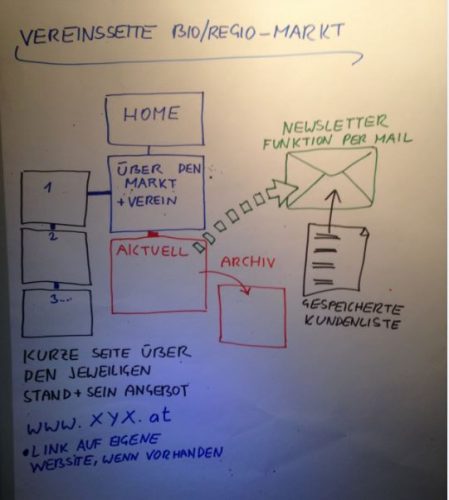 VEREINSSEITE BIO/REGIO-MARKT
HOME
ÜBER DEN
MARKT
+VEREIN
1
2
3...
AKTUELL
ARCHIV
NEWSLETTER
FUNKTION PER MAIL
GESPEICHERTE
KUNDENLISTE
KURZE SEITE ÜBER
DEN JEWEILIGEN
STAND + SEIN ANGEBOT
www.XYX.at
• LINK AUF EIGENE
WEBSITE, WENN VORHANDEN